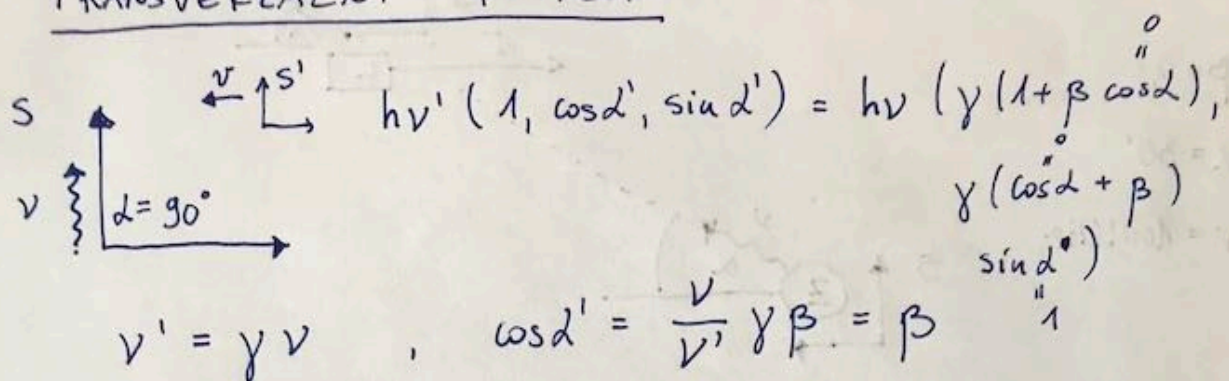 S
v S'
hν' ( 1, cosα', sinα' ) = hν ( γ (1+ β cosα),
0
"
γ ( cosα + β )
0
"
sinα )
"
1
ν
α = 90°
ν' = γ ν , cosα' = ν/ν' γ β = β